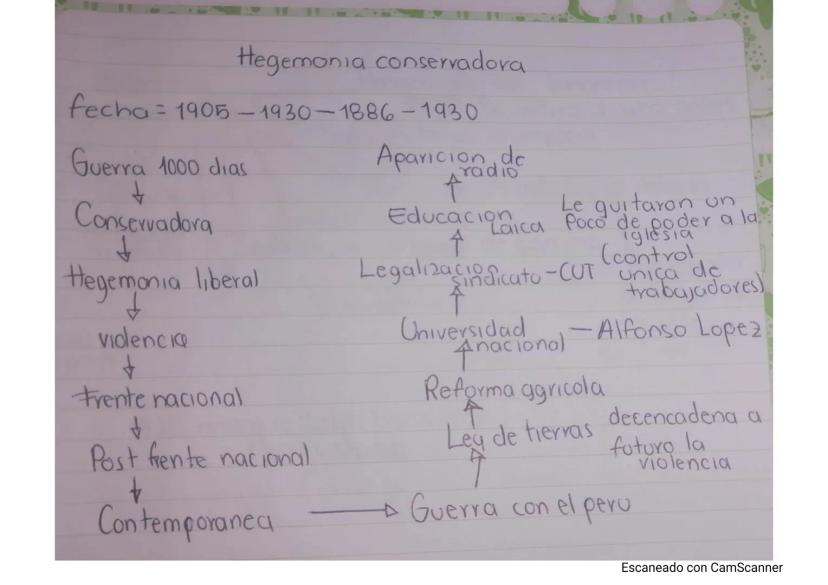 Hegemonia conservadora
fecha = 1905 - 1930 - 1886 - 1930
Guerra 1000 dias
↓
Conservadora
↓
Hegemonia liberal
↓
violencia
↓
frente nacional
↓
Post frente nacional
↓
Contemporanea → Guerra con el peru
↑
Ley de tierras decencadena a
futuro la
violencia
↑
Reforma agricola
↑
Universidad
nacional - Alfonso Lopez
↑
Legalizacion
sindicato - CUT (control
unica de
trabajadores)
↑
Educacion
Laica Le guitaron un
poco de poder a la
iglesia
↑
Aparicion de
radio
Escaneado con CamScanner